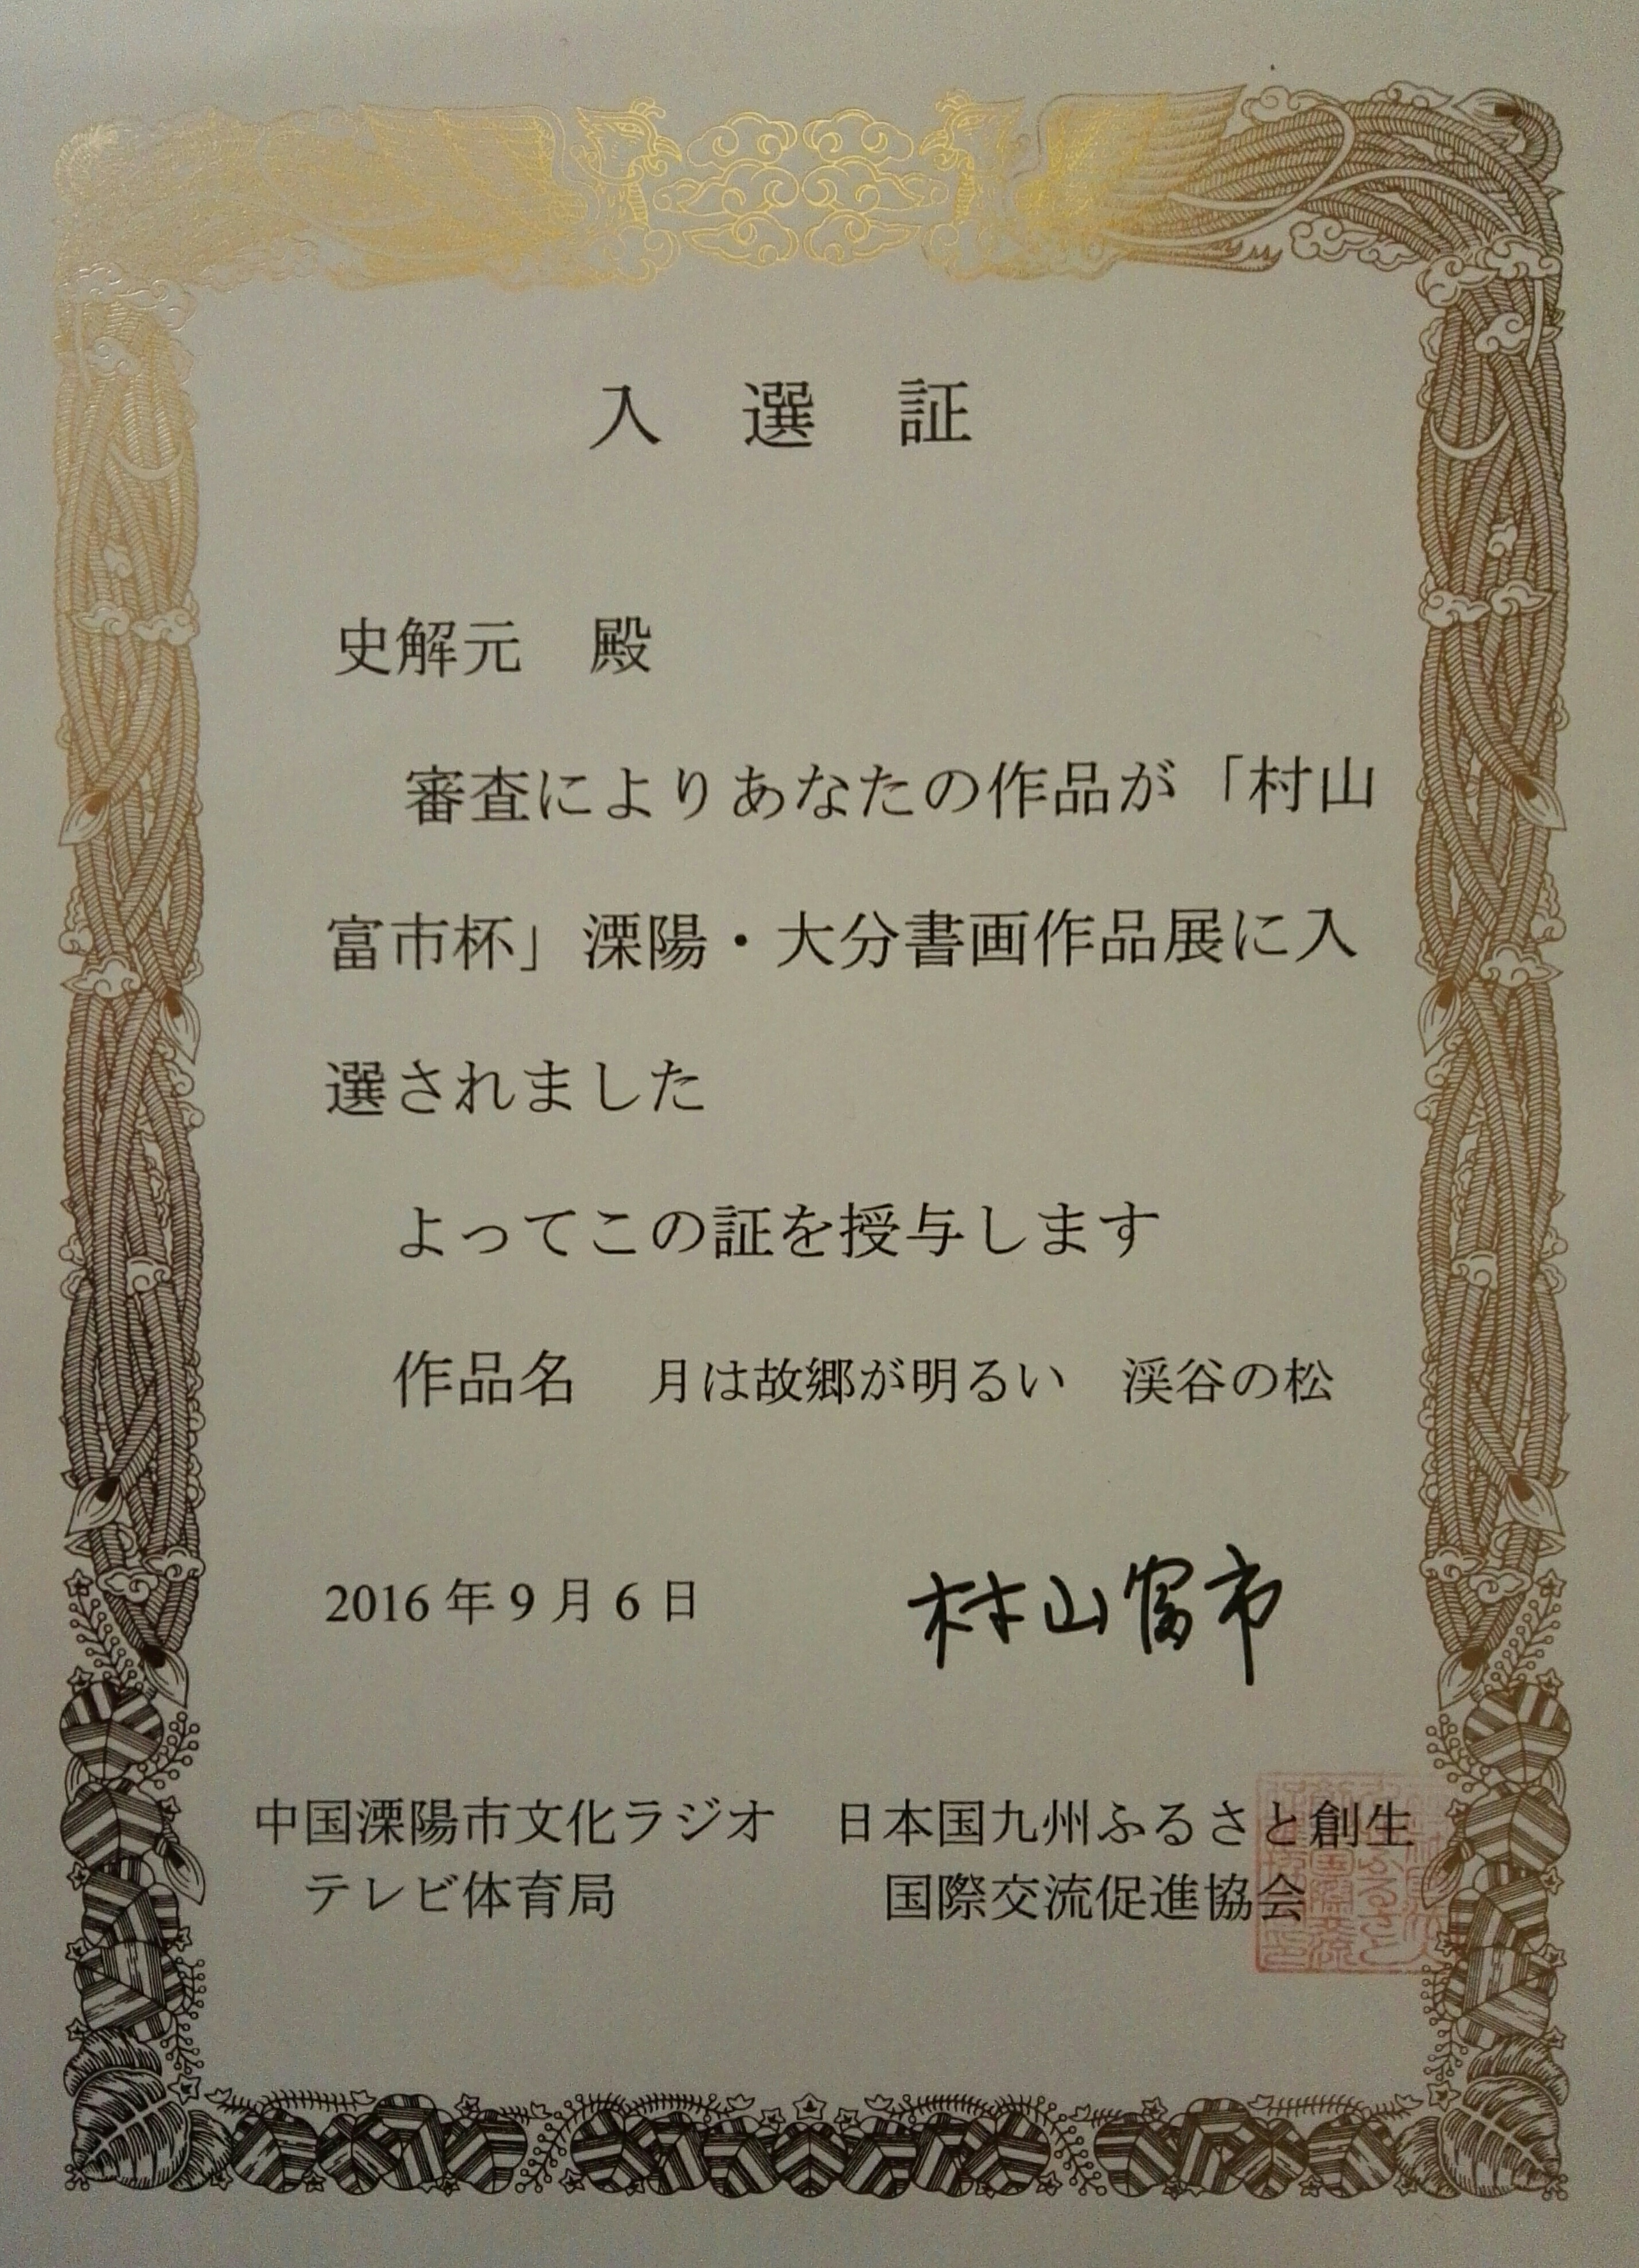 入 選 証
史解元 殿
審査によりあなたの作品が「村山
富市杯」溧陽・大分書画作品展に入
選されました
よってこの証を授与します
作品名 月は故郷が明るい 渓谷の松
2016年9月6日 村山富市
中国溧陽市文化ラジオ
テレビ体育局
日本国九州ふるさと創生
国際交流促進協会